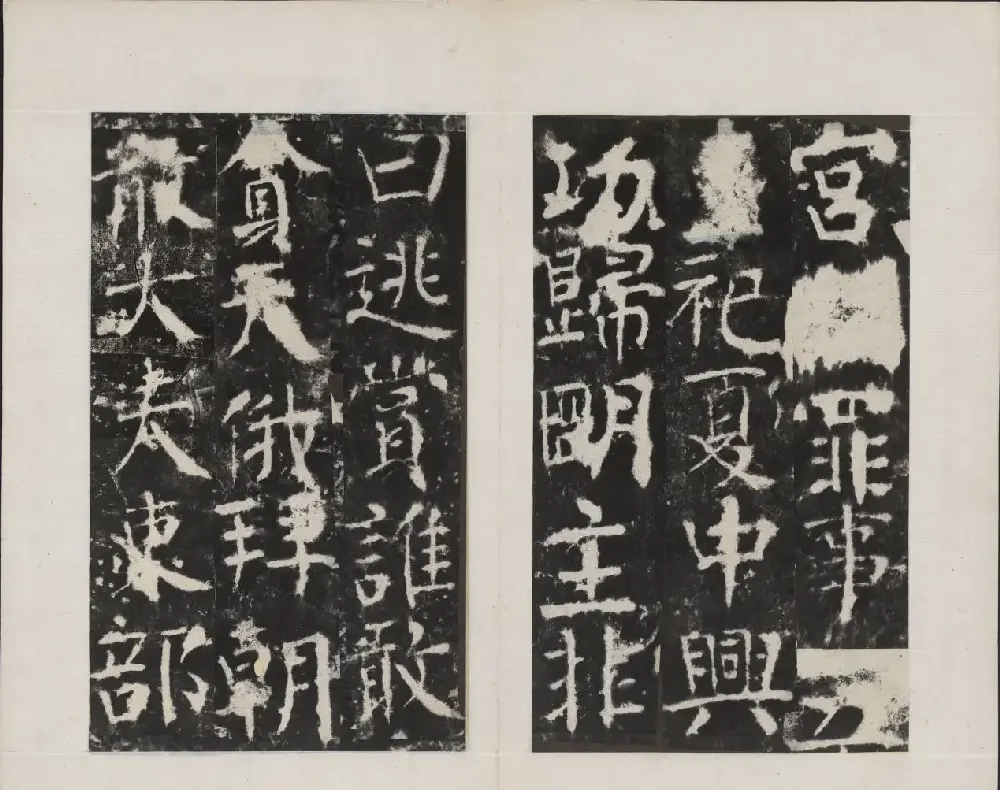 宮罪事
祀夏中興
功歸明主非
曰逃賞誰敢
貪天俄拜朝
散大夫吏部